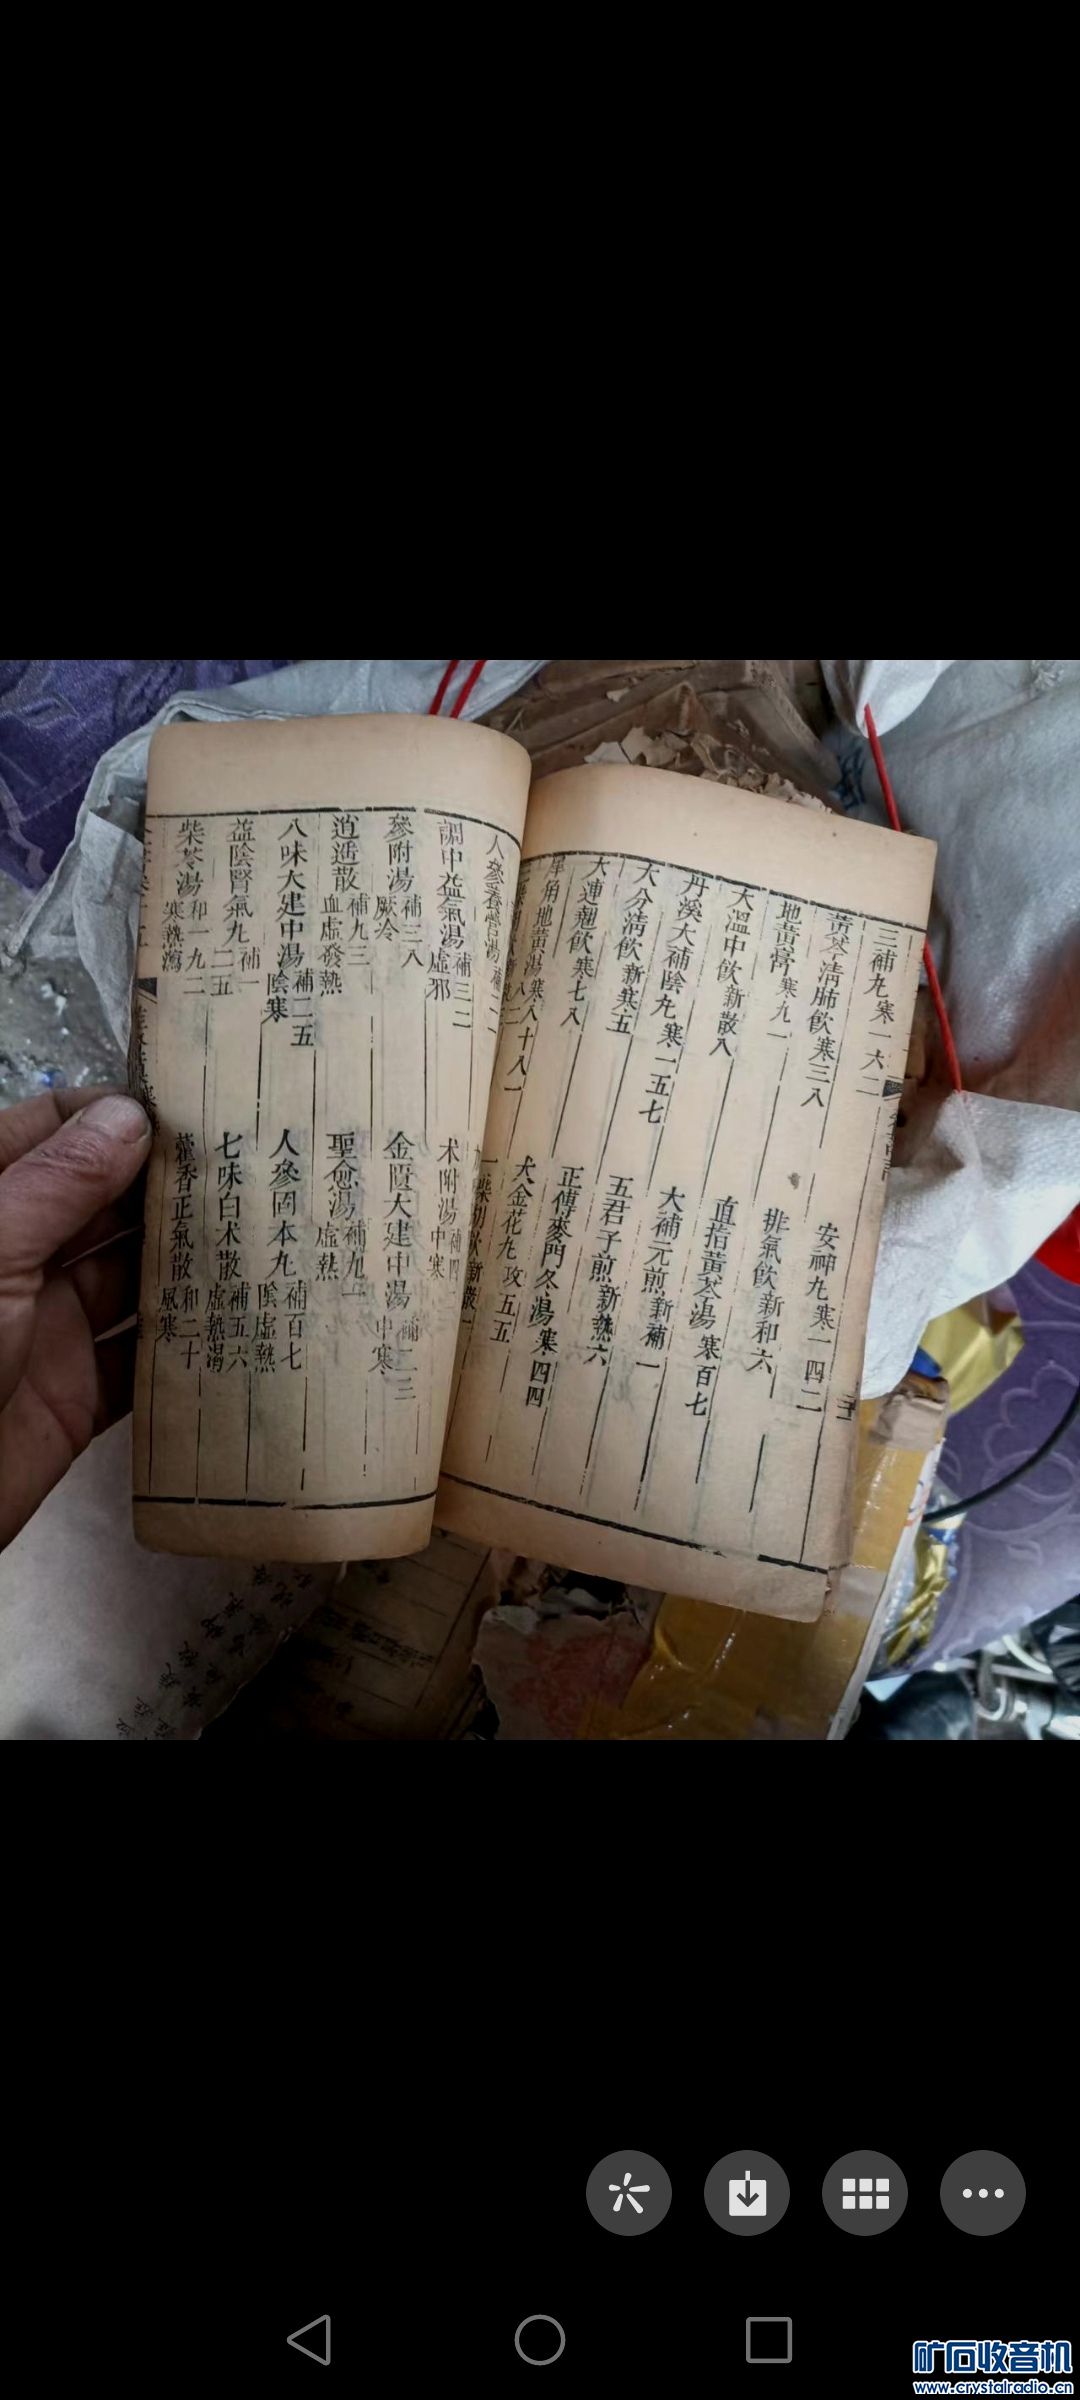 三補丸寒一六二
安神丸寒一四二
黃芩淸肺飮寒三八
排氣飮新和六
地黃膏寒九一
直指黃芩湯寒百七
大溫中飮新散八
大補元煎新補一
丹溪大補陰丸寒一五七
五君子煎新熱六
大分淸飮新寒五
正傳麥門冬湯寒四四
大連翹飮寒七八
大金花丸攻五五
犀角地黃湯
人參養營湯補二一
調中益氣湯補三二虛邪
术附湯補四一中寒
參附湯補三八厥冷
金匱大建中湯補二三中寒
逍遙散補九三血虛發熱
聖愈湯補九一虛熱
八味大建中湯補二五陰寒
人參固本丸補百七陰虛熱
益陰腎氣丸補一二五
七味白术散補五六虛熱渴
柴苓湯和一九二寒熱瀉
藿香正氣散和二十風寒
矿石收音机
www.crystalradio.cn